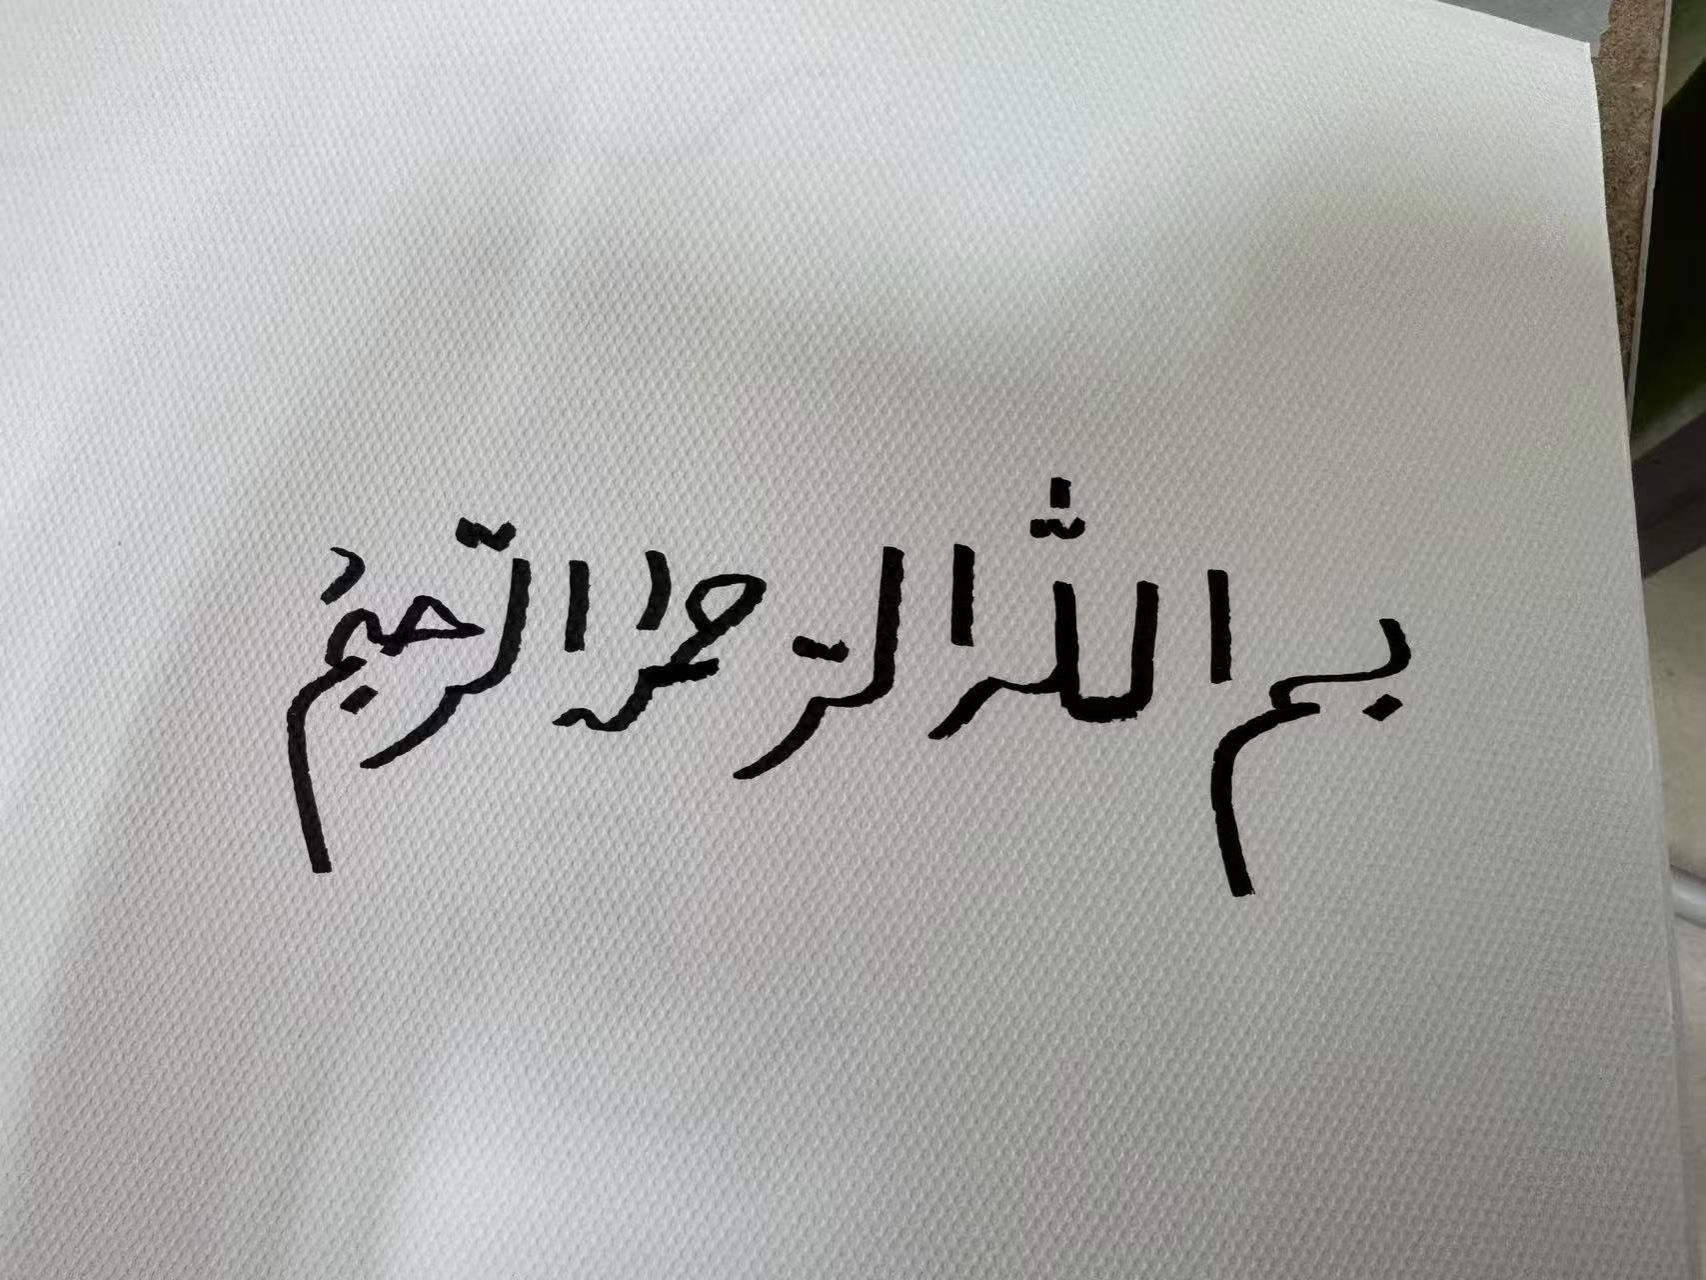 بسم اللّٰه الرّحمٰن الرّحيم